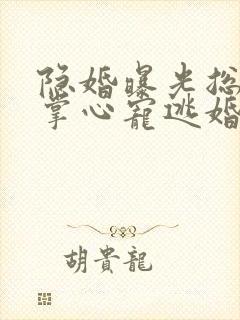 隐婚曝光总
掌心宠逃婚
胡貴龍